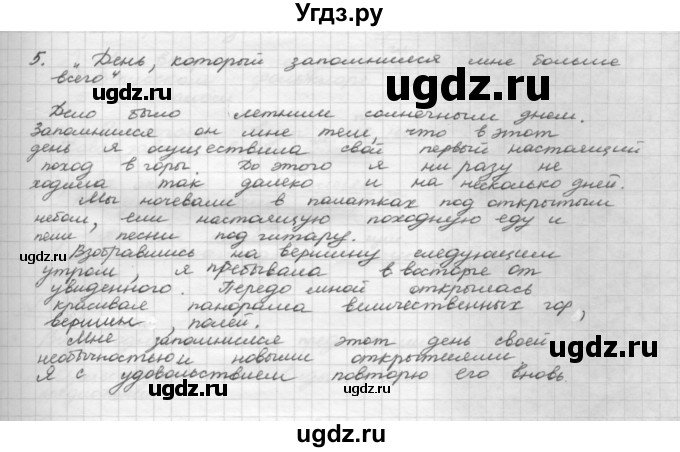 Угдз.ру
5. „День, который запомнился мне больше
всего"
Дело было летним солнечным днем.
Запомнился он мне тем, что в этот
день я осуществила свой первый настоящий
поход в горы. До этого я ни разу не
ходила так далеко и на несколько дней.
Мы ночевали в палатках под открытым
небом, ели настоящую походную еду и
пели песни под гитару.
Взобравшись на вершину следующим
утром, я пребывала в восторге от
увиденного. Передо мной открылась
красивая панорама величественных гор,
вершин, полей.
Мне запомнился этот день своей
необычностью и новыми открытиями.
Я с удовольствием повторю его вновь
ugdz.ru
ugdz.ru
ugdz.ru
ugdz.ru
ugdz.ru
ugdz.ru
ugdz.ru
ugdz.ru
ugdz.ru
ugdz.ru
ugdz.ru
ugdz.ru